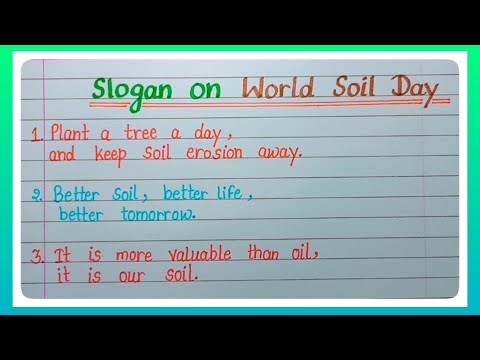 Slogan on World Soil Day
1. Plant a tree a day,
and keep soil erosion away.
2. Better soil, better life,
better tomorrow.
3. It is more valuable than oil,
it is our soil.